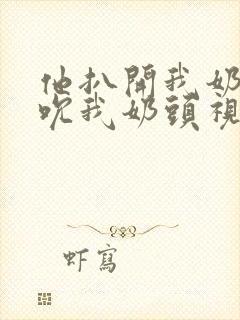 他扒開我奶
吹我奶頭視
虾寫